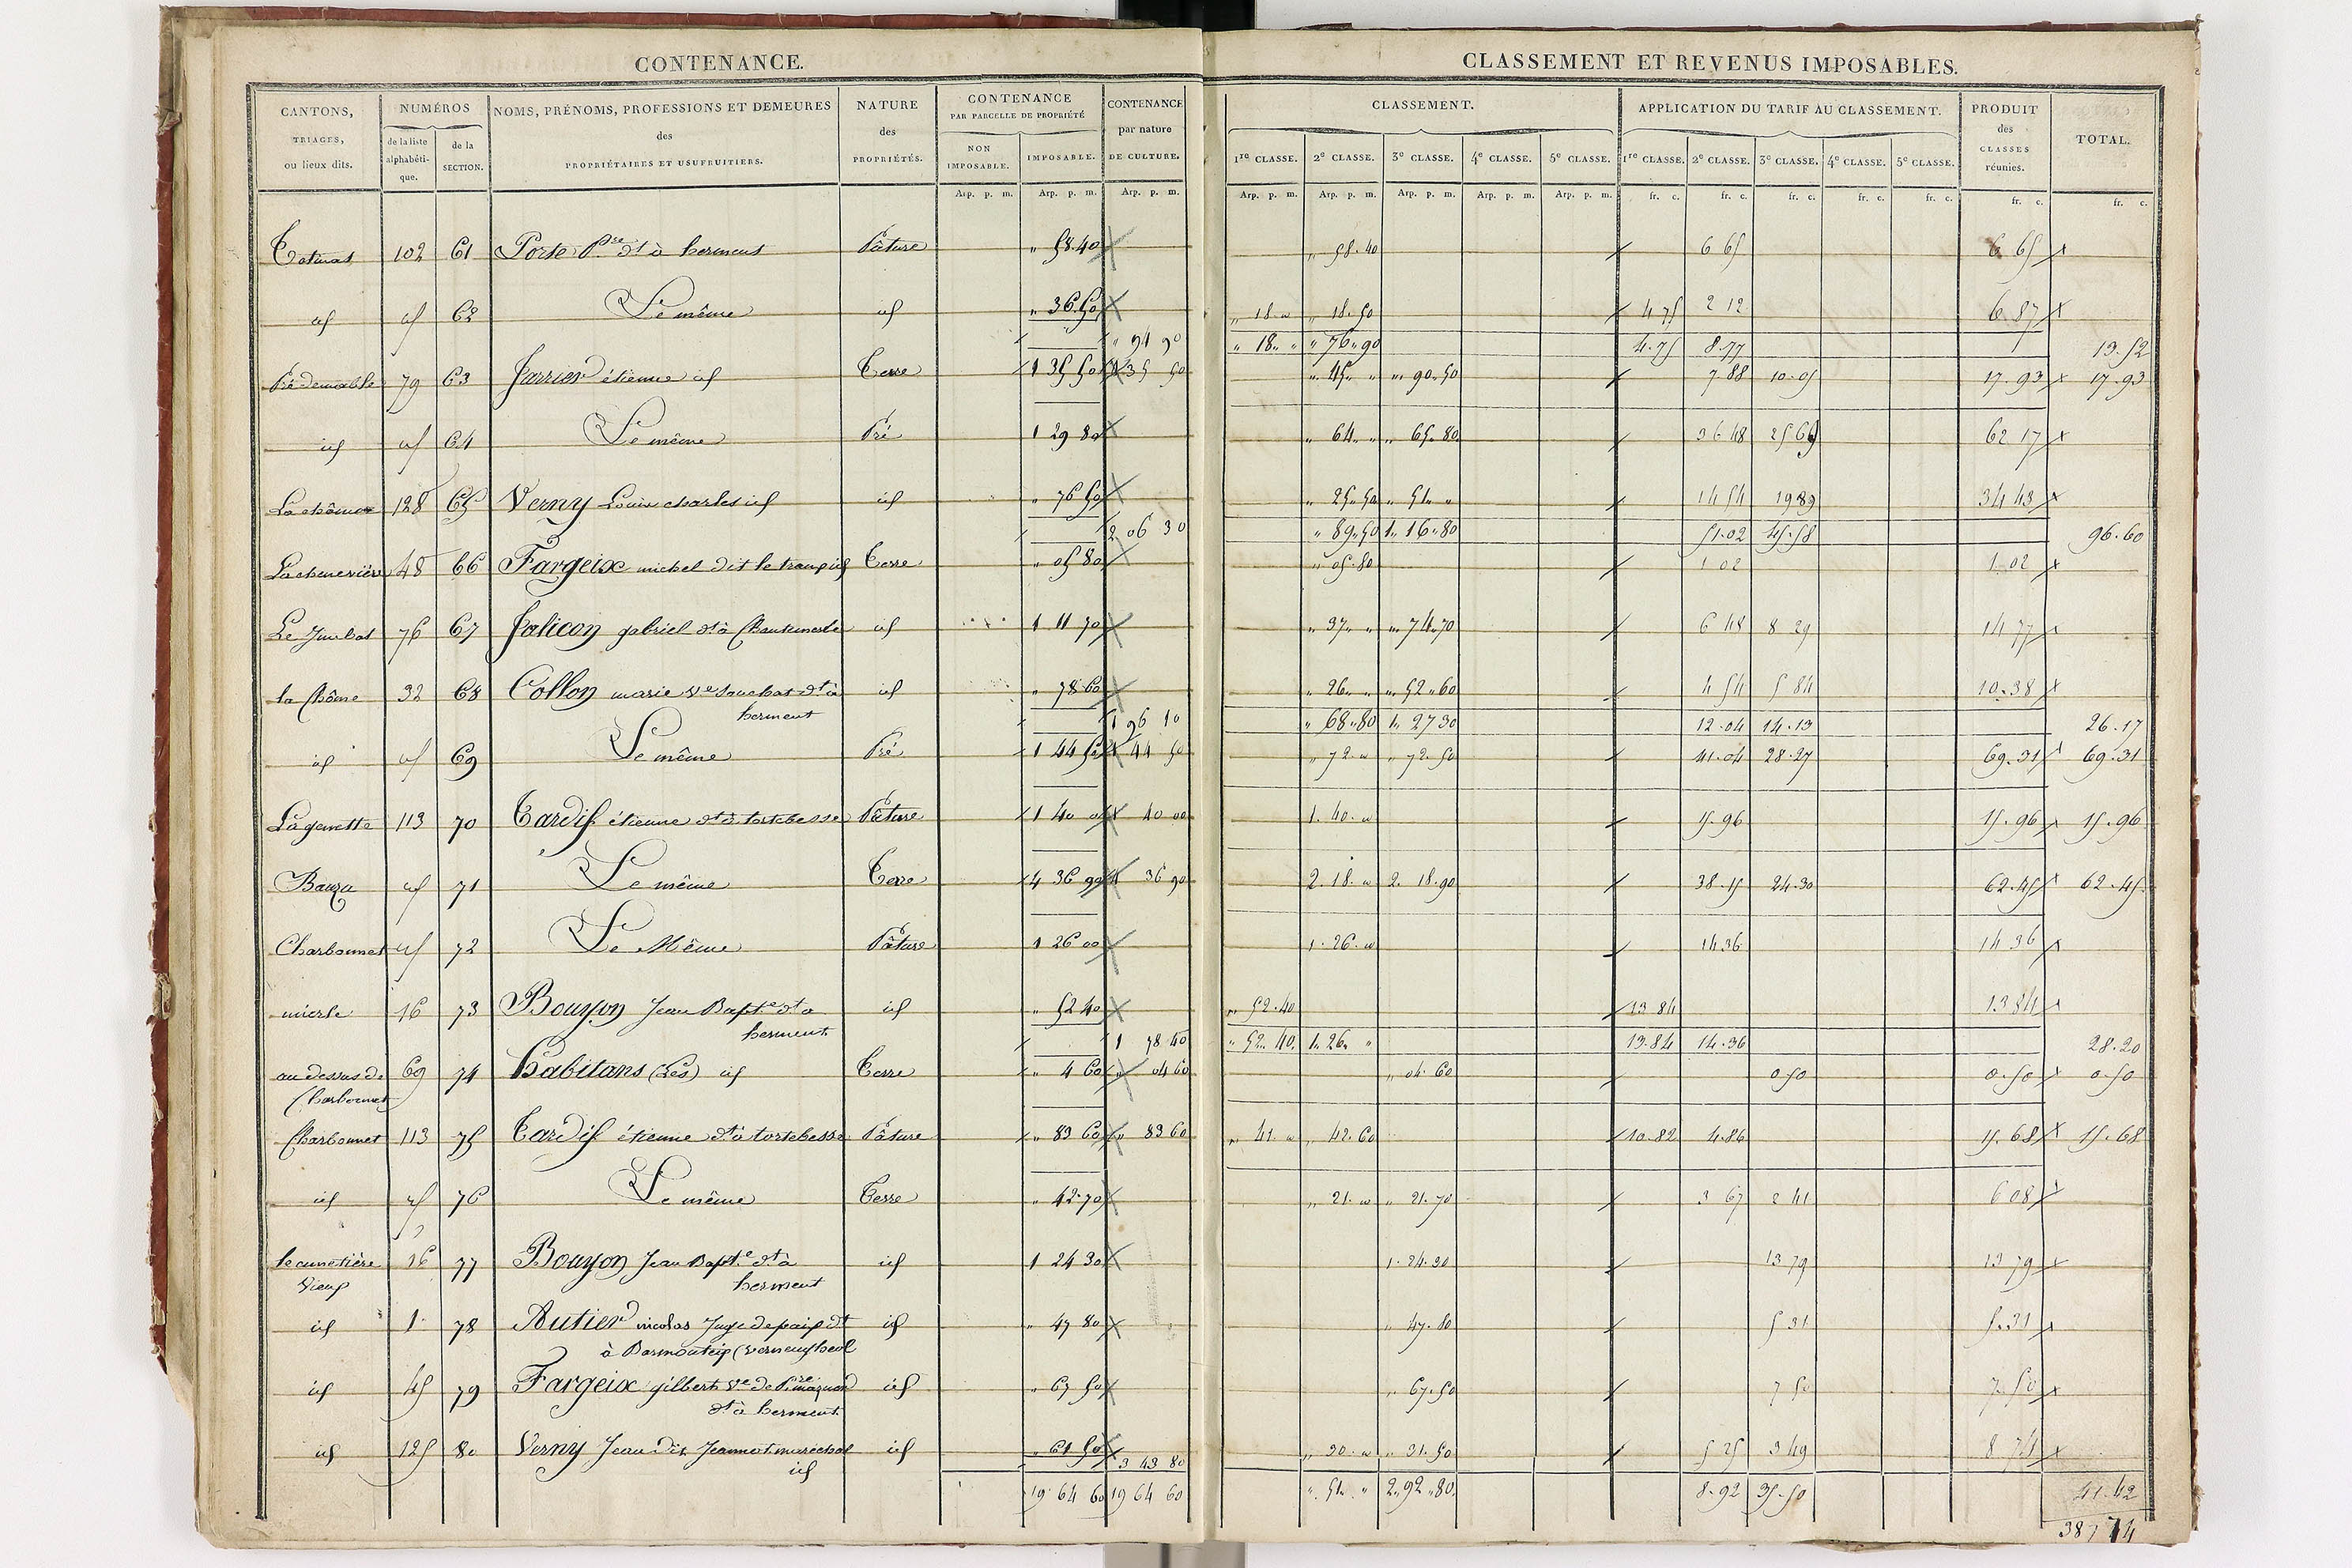 CONTENANCE.
CANTONS, TRIAGES, ou lieux dits. | NUMÉROS de la liste alphabétique. | de la SECTION. | NOMS, PRÉNOMS, PROFESSIONS ET DEMEURES des PROPRIÉTAIRES ET USUFRUITIERS. | NATURE des PROPRIÉTÉS. | CONTENANCE PAR PARCELLE DE PROPRIÉTÉ NON IMPOSABLE. | IMPOSABLE. | CONTENANCE par nature DE CULTURE.
Arp. p. m. | Arp. p. m. | Arp. p. m.
102 | 61 | Porte Pre dt à herment | Pâture | " 58.40
id | id | 62 | Le même | id | " 36.50
" 94 90
79 | 63 | Jarrier étienne id | Terre | 1 35 50 | 1 35 50
id | id | 64 | Le même | Pré | 1 29 80
128 | 65 | Verny Louis charles id | id | " 76 50
2 06 30
48 | 66 | Fargeix michel dit le id | Terre | " 05 80
76 | 67 | Jalicon gabriel dt à | id | 1 11 70
la Chôme | 32 | 68 | Collon marie ve dt à | id | " 78 60
herment
1 96 10
id | id | 69 | Le même | Pré | 1 44 50 | 1 44 50
113 | 70 | Tardif étienne dt à tortebesse | Pâture | 1 40 00 | 1 40 00
id | 71 | Le même | Terre | 4 36 90 | 4 36 90
Charbonnet | id | 72 | Le Même | Pâture | 1 26 00
16 | 73 | Bouyon Jean Bapte dt à | id | " 52 40
herment
1 78 40
au dessus de | 69 | 74 | habitans (Les) id | Terre | " 4 60 | " 04 60
Charbonnet
Charbonnet | 113 | 75 | Tardif étienne dt à tortebesse | Pâture | " 83 60 | " 83 60
id | id | 76 | Le même | Terre | " 42.70
le cimetière | 16 | 77 | Bouyon Jean Bapte dt à | id | 1 24 30
vieux | herment
id | 1 | 78 | Autier nicolas Juge de paix dt | id | " 47 80
à (verneugheol
id | 45 | 79 | Fargeix gilbert ve de Pre | id | " 67 50
dt à herment
id | 125 | 80 | Verny Jean dit Jeannot maréchal | id | " 61 50
id | 3 43 80
19 64 60 | 19 64 60
CLASSEMENT ET REVENUS IMPOSABLES.
CLASSEMENT. | APPLICATION DU TARIF AU CLASSEMENT. | PRODUIT des CLASSES réunies. | TOTAL.
1re CLASSE. | 2e CLASSE. | 3e CLASSE. | 4e CLASSE. | 5e CLASSE. | 1re CLASSE. | 2e CLASSE. | 3e CLASSE. | 4e CLASSE. | 5e CLASSE.
Arp. p. m. | Arp. p. m. | Arp. p. m. | Arp. p. m. | Arp. p. m. | fr. c. | fr. c. | fr. c. | fr. c. | fr. c. | fr. c. | fr. c.
" 58.40 | 6 65 | 6 65
" 18 " | " 18.50 | 4 75 | 2 12 | 6 87
" 18 " | " 76 90 | 4.75 | 8.77 | 13.52
" 45 " | " 90.50 | 7 88 | 10.05 | 17.93 | 17.93
" 64 " | " 65.80 | 36 48 | 25 69 | 62 17
" 25.50 | " 51 " | 14 54 | 19 89 | 34 43
" 89.50 | 1 16.80 | 51.02 | 45.58 | 96.60
" 05.80 | 1 02 | 1 02
" 37 " | " 74.70 | 6 48 | 8 29 | 14 77
" 26 " | " 52.60 | 4 54 | 5 84 | 10.38
" 68.80 | 1 27 30 | 12.04 | 14.13 | 26.17
" 72 " | " 72.50 | 41.04 | 28.27 | 69.31 | 69.31
1. 40 " | 15.96 | 15.96 | 15.96
2. 18 " | 2. 18.90 | 38.15 | 24.30 | 62.45 | 62.45
1. 26 " | 14 36 | 14 36
" 52.40 | 13 84 | 13 84
" 52.40 | 1. 26 " | 13.84 | 14.36 | 28.20
" 04 60 | 0 50 | 0.50 | 0.50
" 41 " | " 42.60 | 10.82 | 4.86 | 15.68 | 15.68
" 21 " | " 21.70 | 3 67 | 2 41 | 6 08
1. 24.30 | 13 79 | 13 79
" 47.80 | 5 31 | 5.31
" 67.50 | 7 50 | 7.50
" 30 " | " 31.50 | 5 25 | 3 49 | 8 74
" 51 " | 2 92.80 | 8.92 | 32.50 | 41.42
387 74